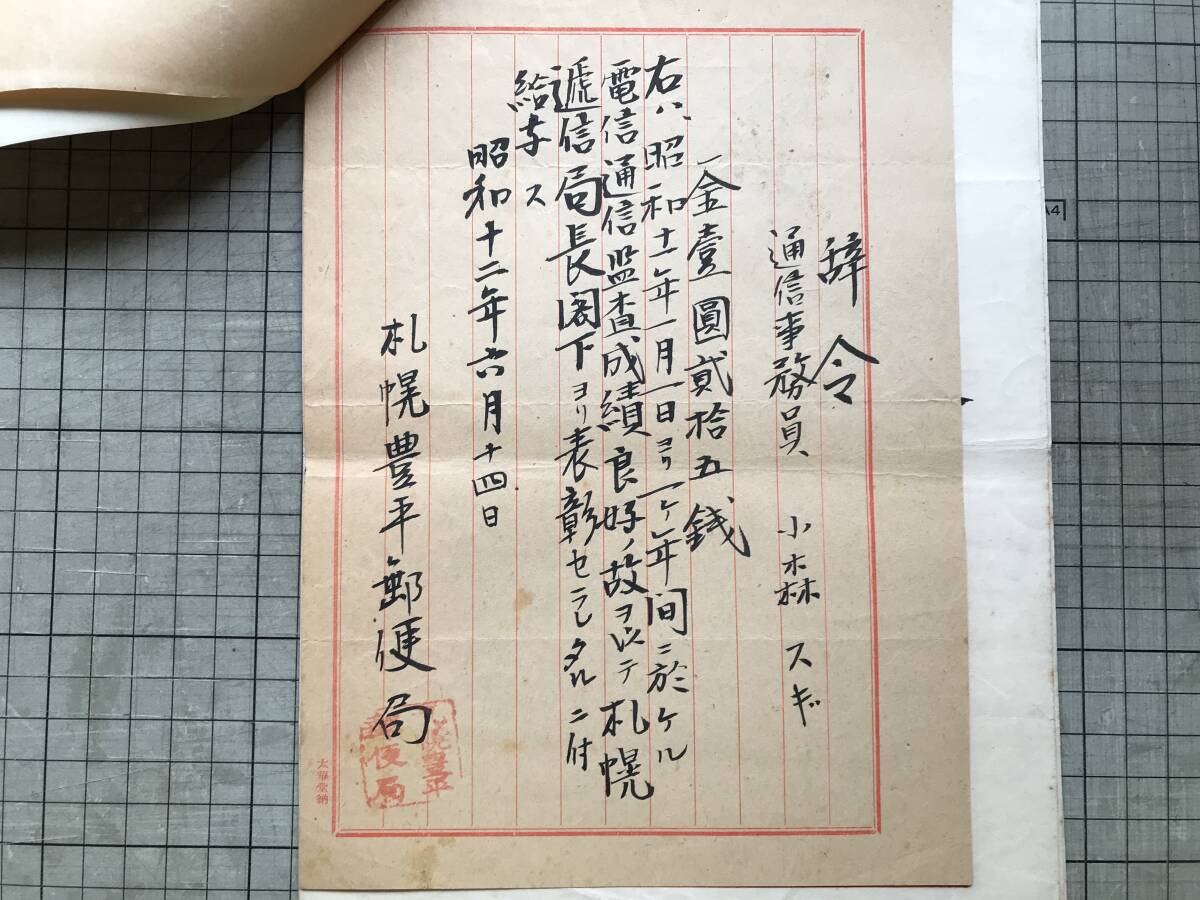 辞令
通信事務員 小森スギ
一金壹圓貳拾五銭
右ハ昭和十一年一月一日ヨリ一ケ年間ニ於ケル
電信通信監査成績良好ノ故ヲ以テ札幌
逓信局長閣下ヨリ表彰セラレタルニ付
給与ス
昭和十二年六月十四日
札幌豊平郵便局
札幌豊平
郵便局
太華堂納
A4